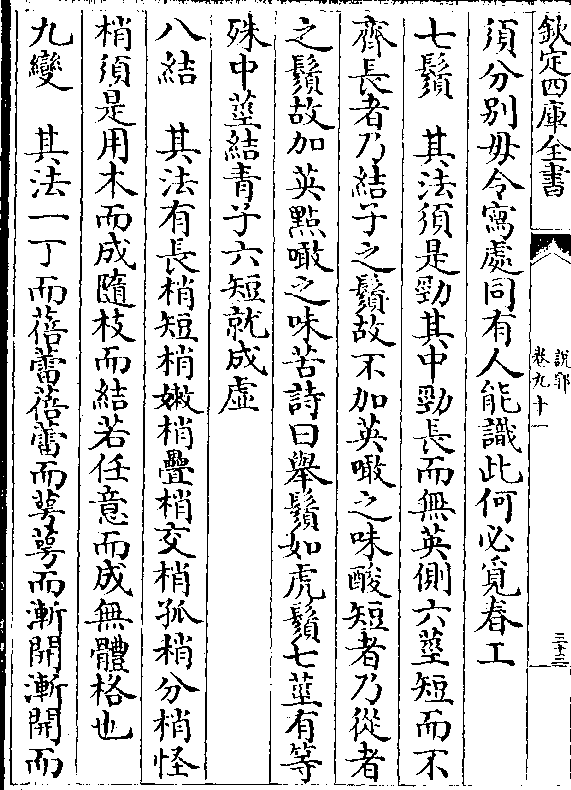 欽定四庫全書
說郛
卷九十一
三十三
須分别毋令寫處同有人能識此何必覔春工
七鬚　其法須是勁其中勁長而無英側六莖短而不
齊長者乃結子之鬚故不加英噉之味酸短者乃從者
之鬚故加英點噉之味苦詩曰舉鬚如虎鬚七莖有等
殊中莖結青子六短就成虛
八結　其法有長梢短梢嫩梢疊梢交梢孤梢分梢怪
梢須是用木而成隨枝而結若任意而成無體格也
九變　其法一丁而蓓蕾蓓蕾而萼萼而漸開漸開而